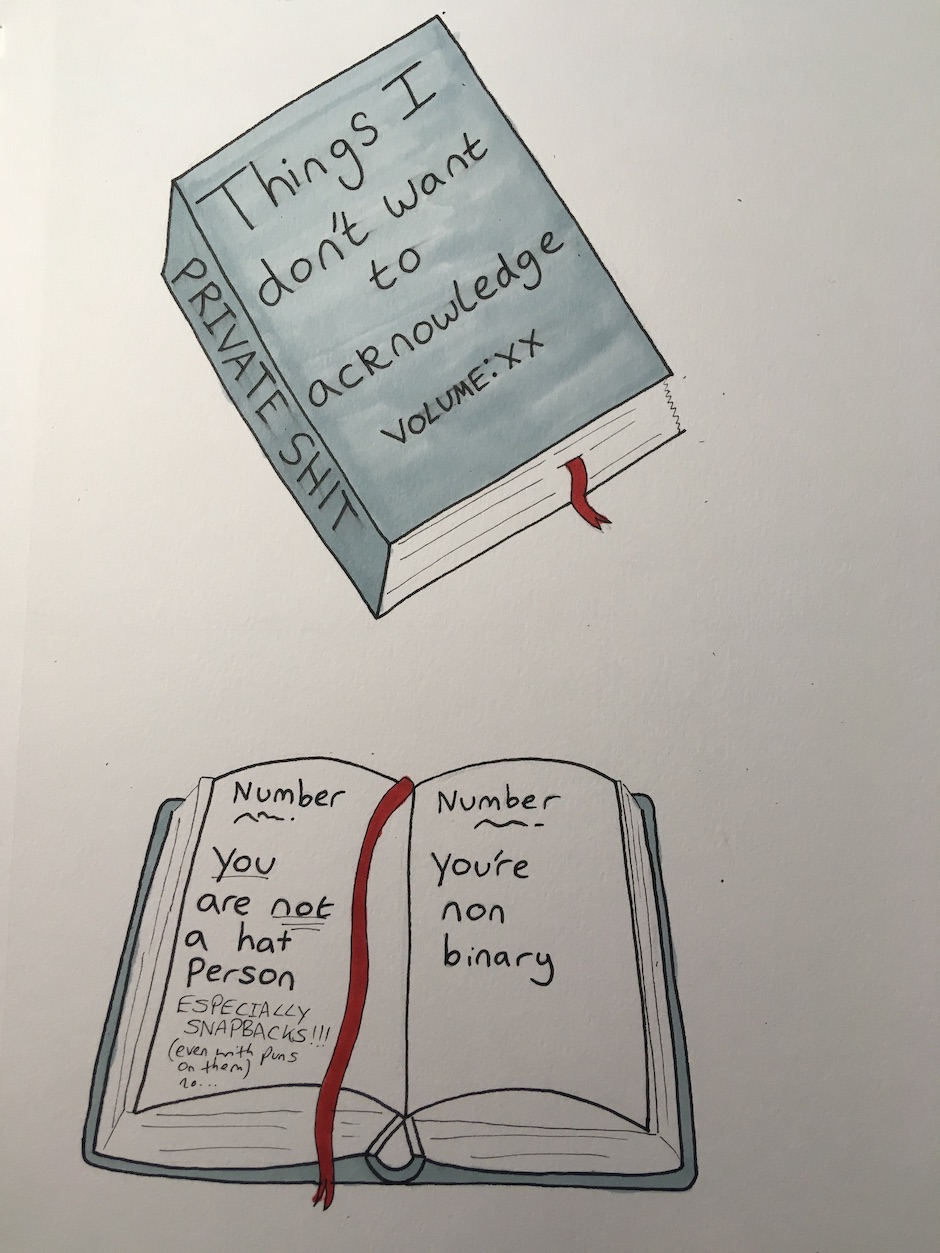 Things I
don't want
to
acknowledge
VOLUME: XX
PRIVATE SHIT
Number
You
are not
a hat
Person
ESPECIALLY
SNAPBACKS!!!
(even with puns
on them)
no...
Number
you're
non
binary